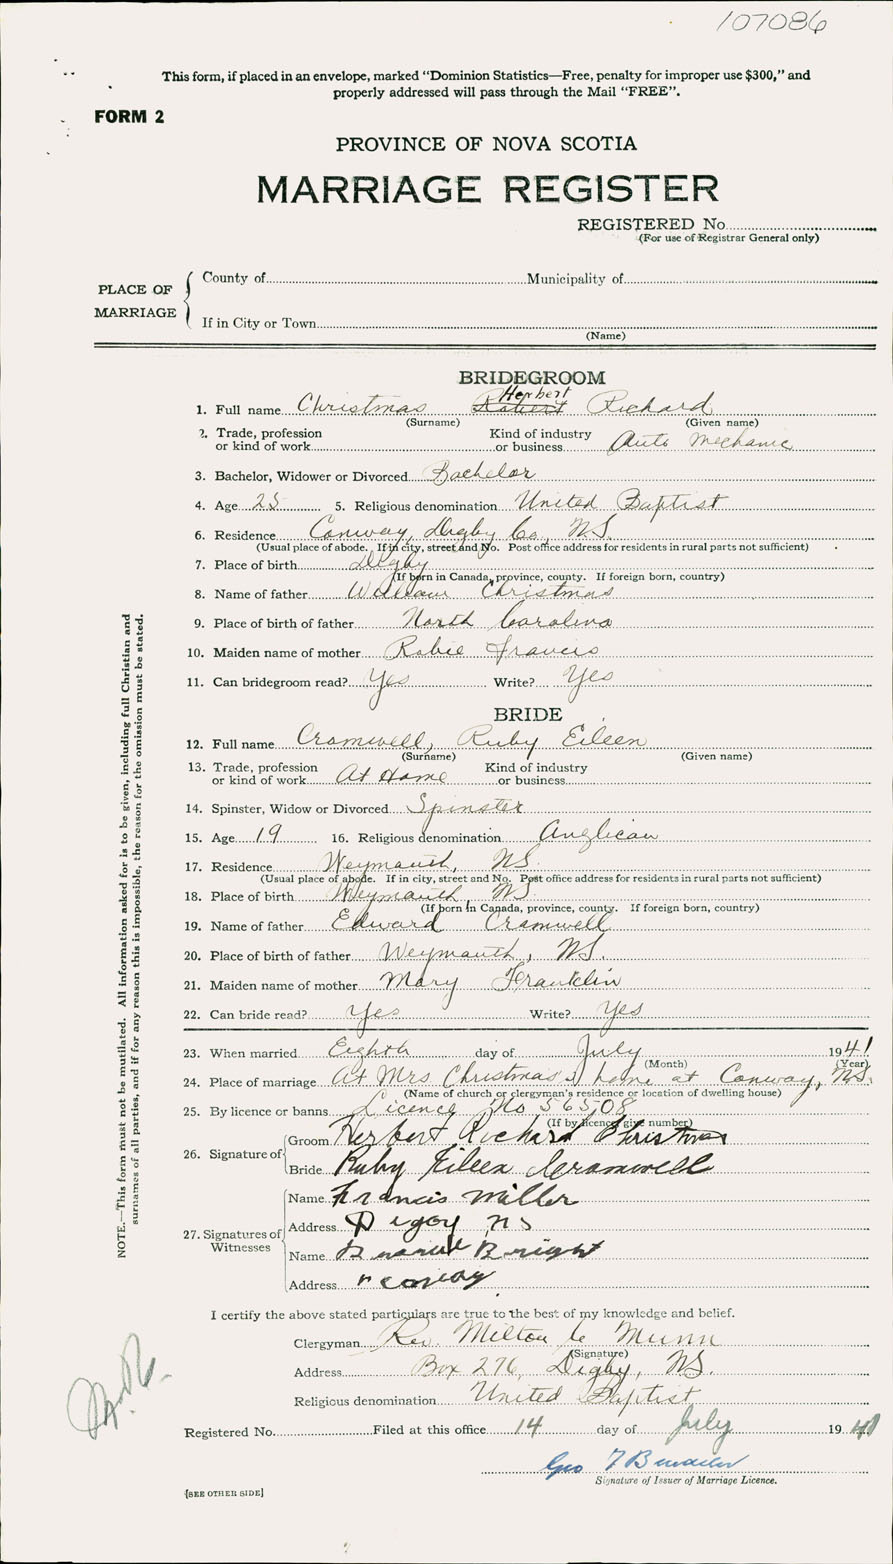 107086
This form, if placed in an envelope, marked "Dominion Statistics—Free, penalty for improper use $300," and
properly addressed will pass through the Mail "FREE".
FORM 2
PROVINCE OF NOVA SCOTIA
MARRIAGE REGISTER
REGISTERED No.
(For use of Registrar General only)
PLACE OF MARRIAGE
County of Municipality of
If in City or Town
(Name)
BRIDEGROOM
Herbert
1. Full name Christmas Robert Richard
(Surname) (Given name)
2. Trade, profession or kind of work Kind of industry or business Auto Mechanic
3. Bachelor, Widower or Divorced Bachelor
4. Age 25 5. Religious denomination United Baptist
6. Residence Conway, Digby Co, N.S.
(Usual place of abode. If in city, street and No. Post office address for residents in rural parts not sufficient)
7. Place of birth Digby
(If born in Canada, province, county. If foreign born, country)
8. Name of father William Christmas
9. Place of birth of father North Carolina
10. Maiden name of mother Robie Francis
11. Can bridegroom read? Yes Write? Yes
BRIDE
12. Full name Cromwell, Ruby Eileen
(Surname) (Given name)
13. Trade, profession or kind of work At Home Kind of industry or business
14. Spinster, Widow or Divorced Spinster
15. Age 19 16. Religious denomination Anglican
17. Residence Weymouth, NS.
(Usual place of abode. If in city, street and No. Post office address for residents in rural parts not sufficient)
18. Place of birth Weymouth NS
(If born in Canada, province, county. If foreign born, country)
19. Name of father Edward Cromwell
20. Place of birth of father Weymouth, NS.
21. Maiden name of mother Mary Franklin
22. Can bride read? Yes Write? Yes
23. When married Eighth day of July 1941
(Month) (Year)
24. Place of marriage At Mrs Christmas's home at Conway, NS.
(Name of church or clergyman's residence or location of dwelling house)
25. By licence or banns Licence No 56508
(If by licence give number)
26. Signature of
Groom Herbert Richard Christmas
Bride Ruby Eileen Cromwell
27. Signatures of Witnesses
Name Francis Miller
Address Digby NS
Name Bright
Address " Conway
I certify the above stated particulars are true to the best of my knowledge and belief.
Clergyman Rev. Milton C Munn
(Signature)
Address Box 276, Digby, NS.
Religious denomination United Baptist
Registered No. Filed at this office 14 day of July 1941
Geo
Signature of Issuer of Marriage Licence.
[SEE OTHER SIDE]
NOTE.—This form must not be mutilated. All information asked for is to be given, including full Christian and
surnames of all parties, and if for any reason this is impossible, the reason for the omission must be stated.